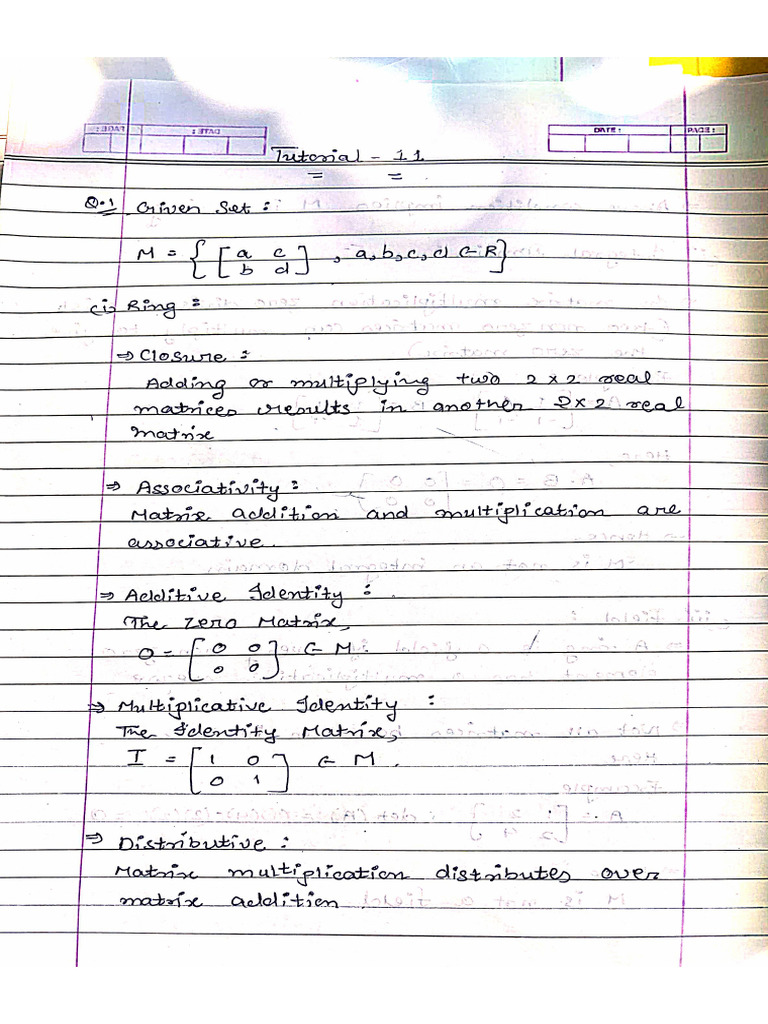 DATE : PAGE :
Tutorial - 11
Q.1 Given Set :
M = { [ a c
b d ] , a, b, c, d ∈ R }
(i) Ring :
⇒ Closure :
Adding or multiplying two 2 × 2 real
matrices results in another 2 × 2 real
matrix
⇒ Associativity :
Matrix addition and multiplication are
associative.
⇒ Additive Identity :
The Zero Matrix,
O = [ 0 0
0 0 ] ∈ M.
⇒ Multiplicative Identity :
The Identity Matrix,
I = [ 1 0
0 1 ] ∈ M.
⇒ Distributive :
Matrix multiplication distributes over
matrix addition